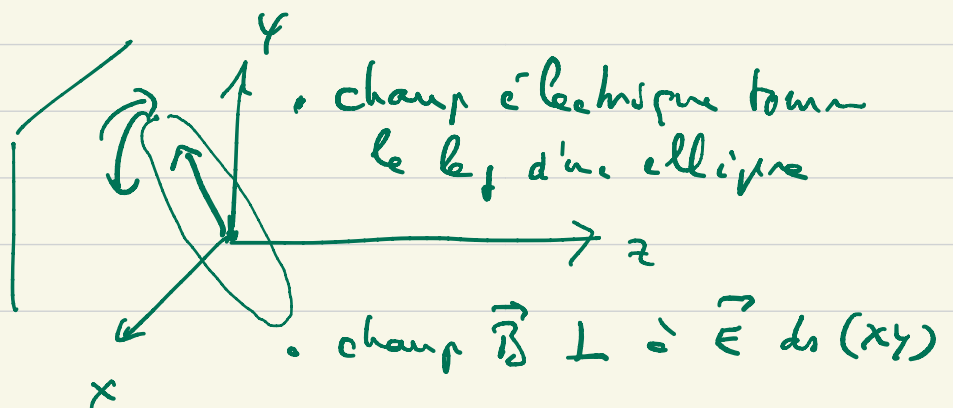 y
• champ électrique tourne
le lg d'une ellipse
z
• champ B⃗ ⊥ à E⃗ ds (xy)
x